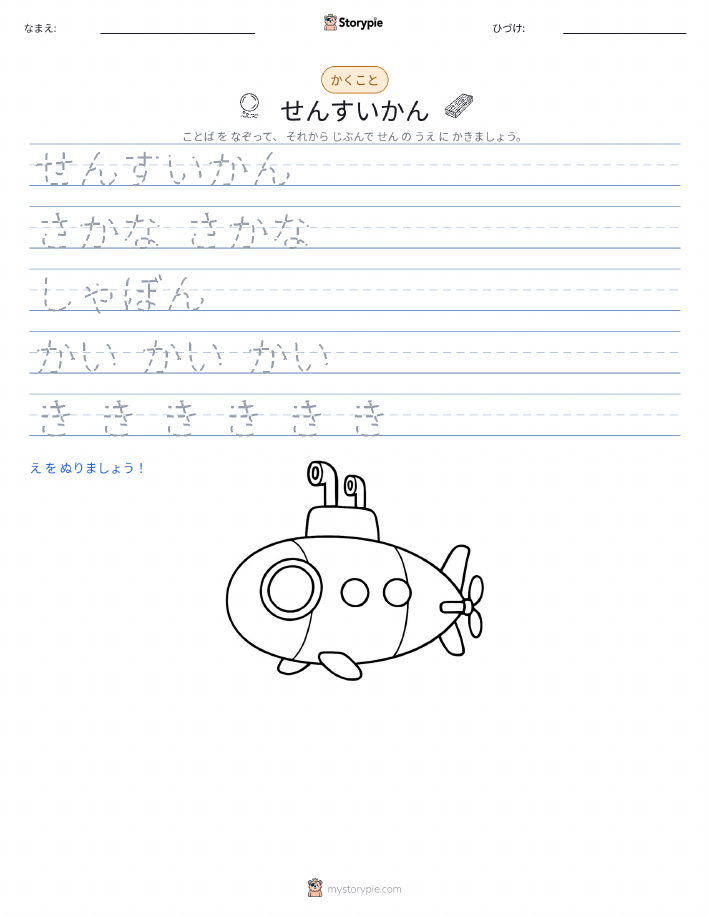 なまえ:
Storypie
ひづけ:
かくこと
せんすいかん
ことば を なぞって、 それから じぶんで せん の うえ に かきましょう。
せんすいかん
さかな さかな
しゃぼん
かい かい かい
き き き き き き
え を ぬりましょう！
mystorypie.com